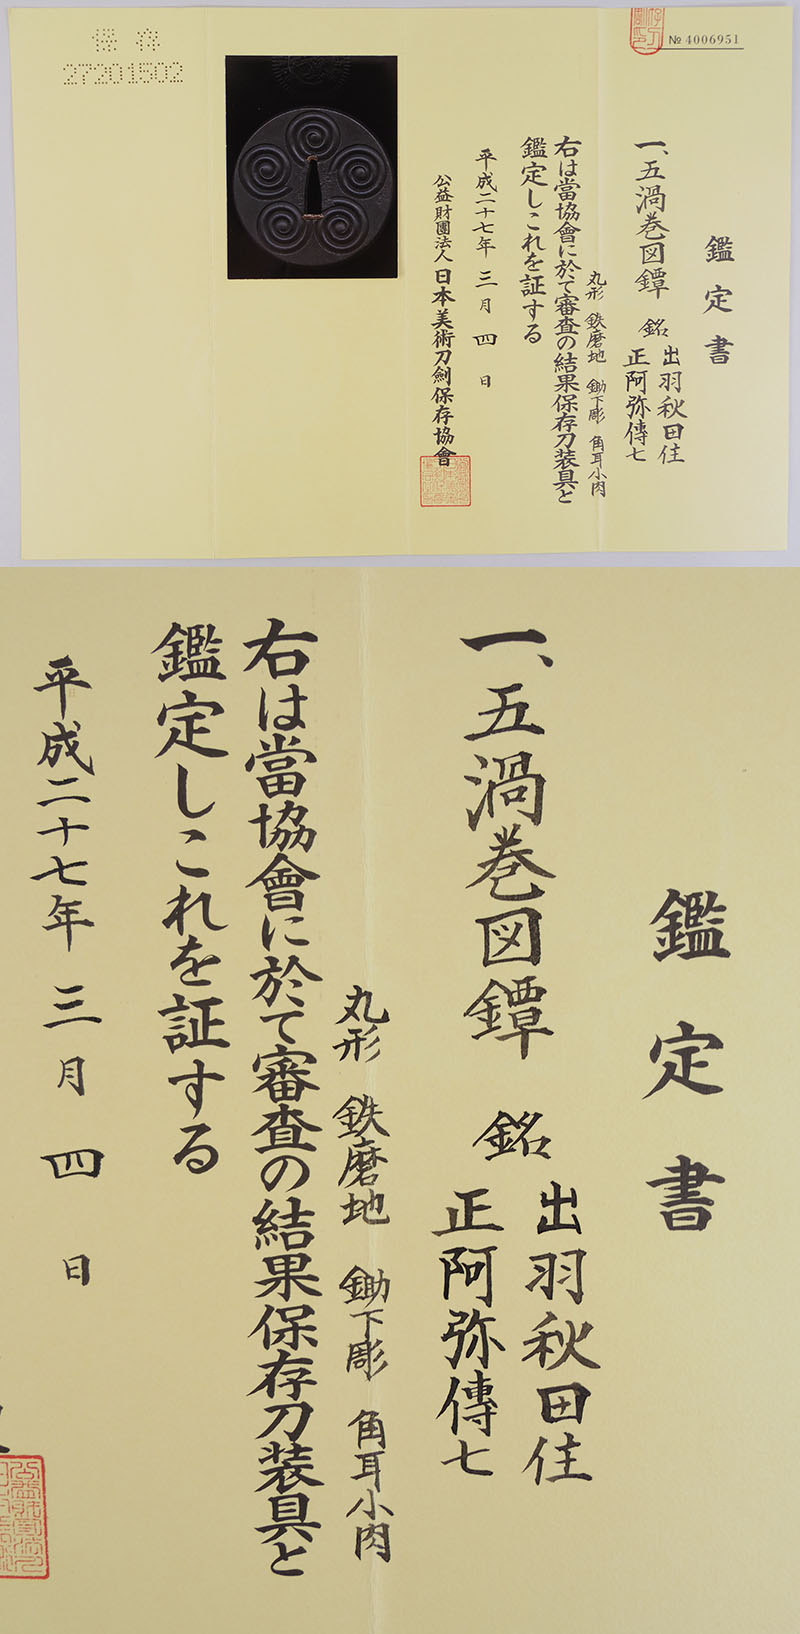 保存
27201502
№ 4006951
鑑定書
一、五渦巻図鐔 銘 出羽秋田住
正阿弥傳七
丸形 鉄磨地 鋤下彫 角耳小肉
右は當協會に於て審査の結果保存刀装具と
鑑定しこれを証する
平成二十七年三月四日
公益財團法人 日本美術刀劍保存協會
鑑定書
一、五渦巻図鐔 銘 出羽秋田住
正阿弥傳七
丸形 鉄磨地 鋤下彫 角耳小肉
右は當協會に於て審査の結果保存刀装具と
鑑定しこれを証する
平成二十七年三月四日